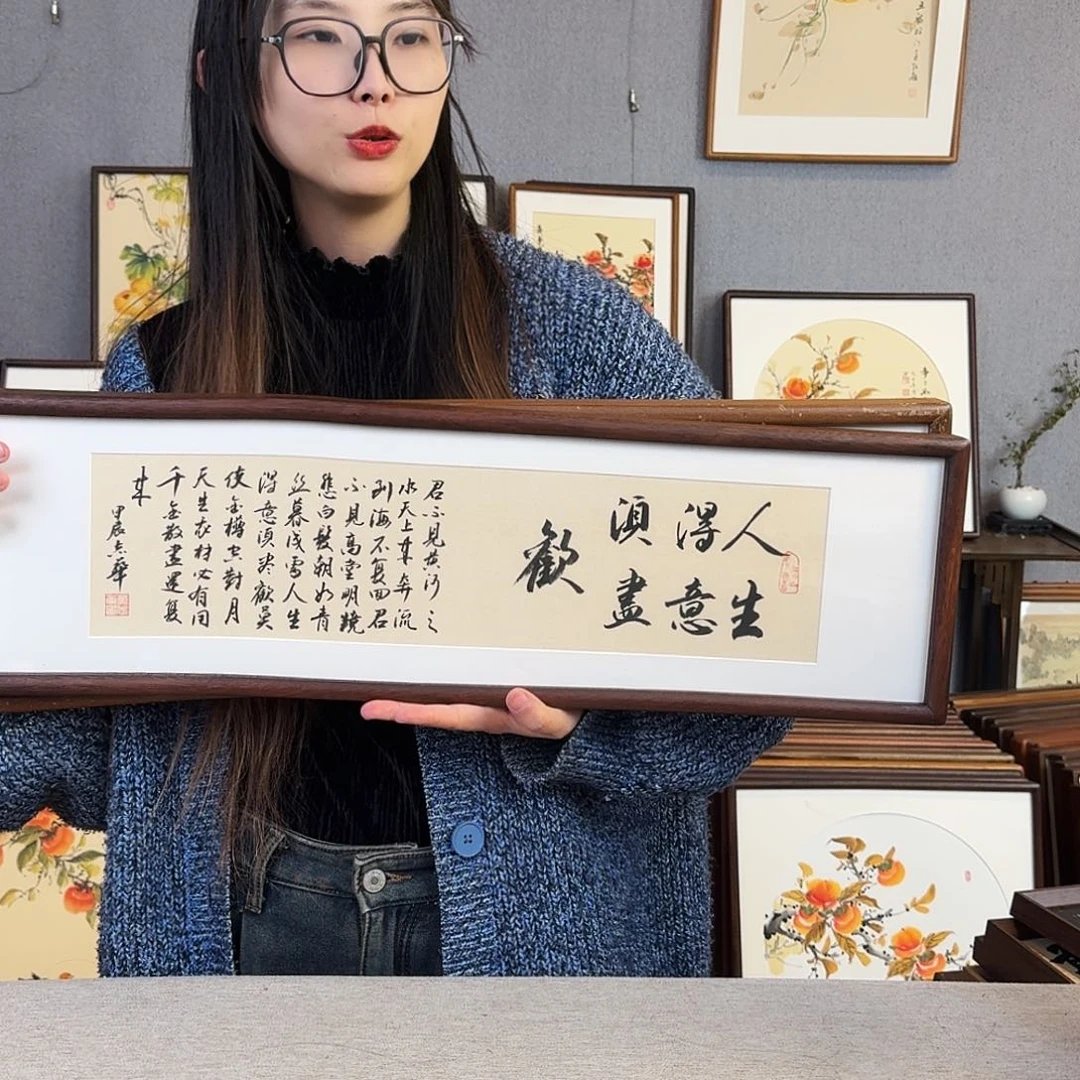 人生
得意
須盡
歡
君不見黃河之
水天上來奔流
到海不復回君
不見高堂明鏡
悲白髮朝如青
絲暮成雪人生
得意須尽歡莫
使金樽空對月
天生我材必有用
千金散盡還復
來
甲辰志華